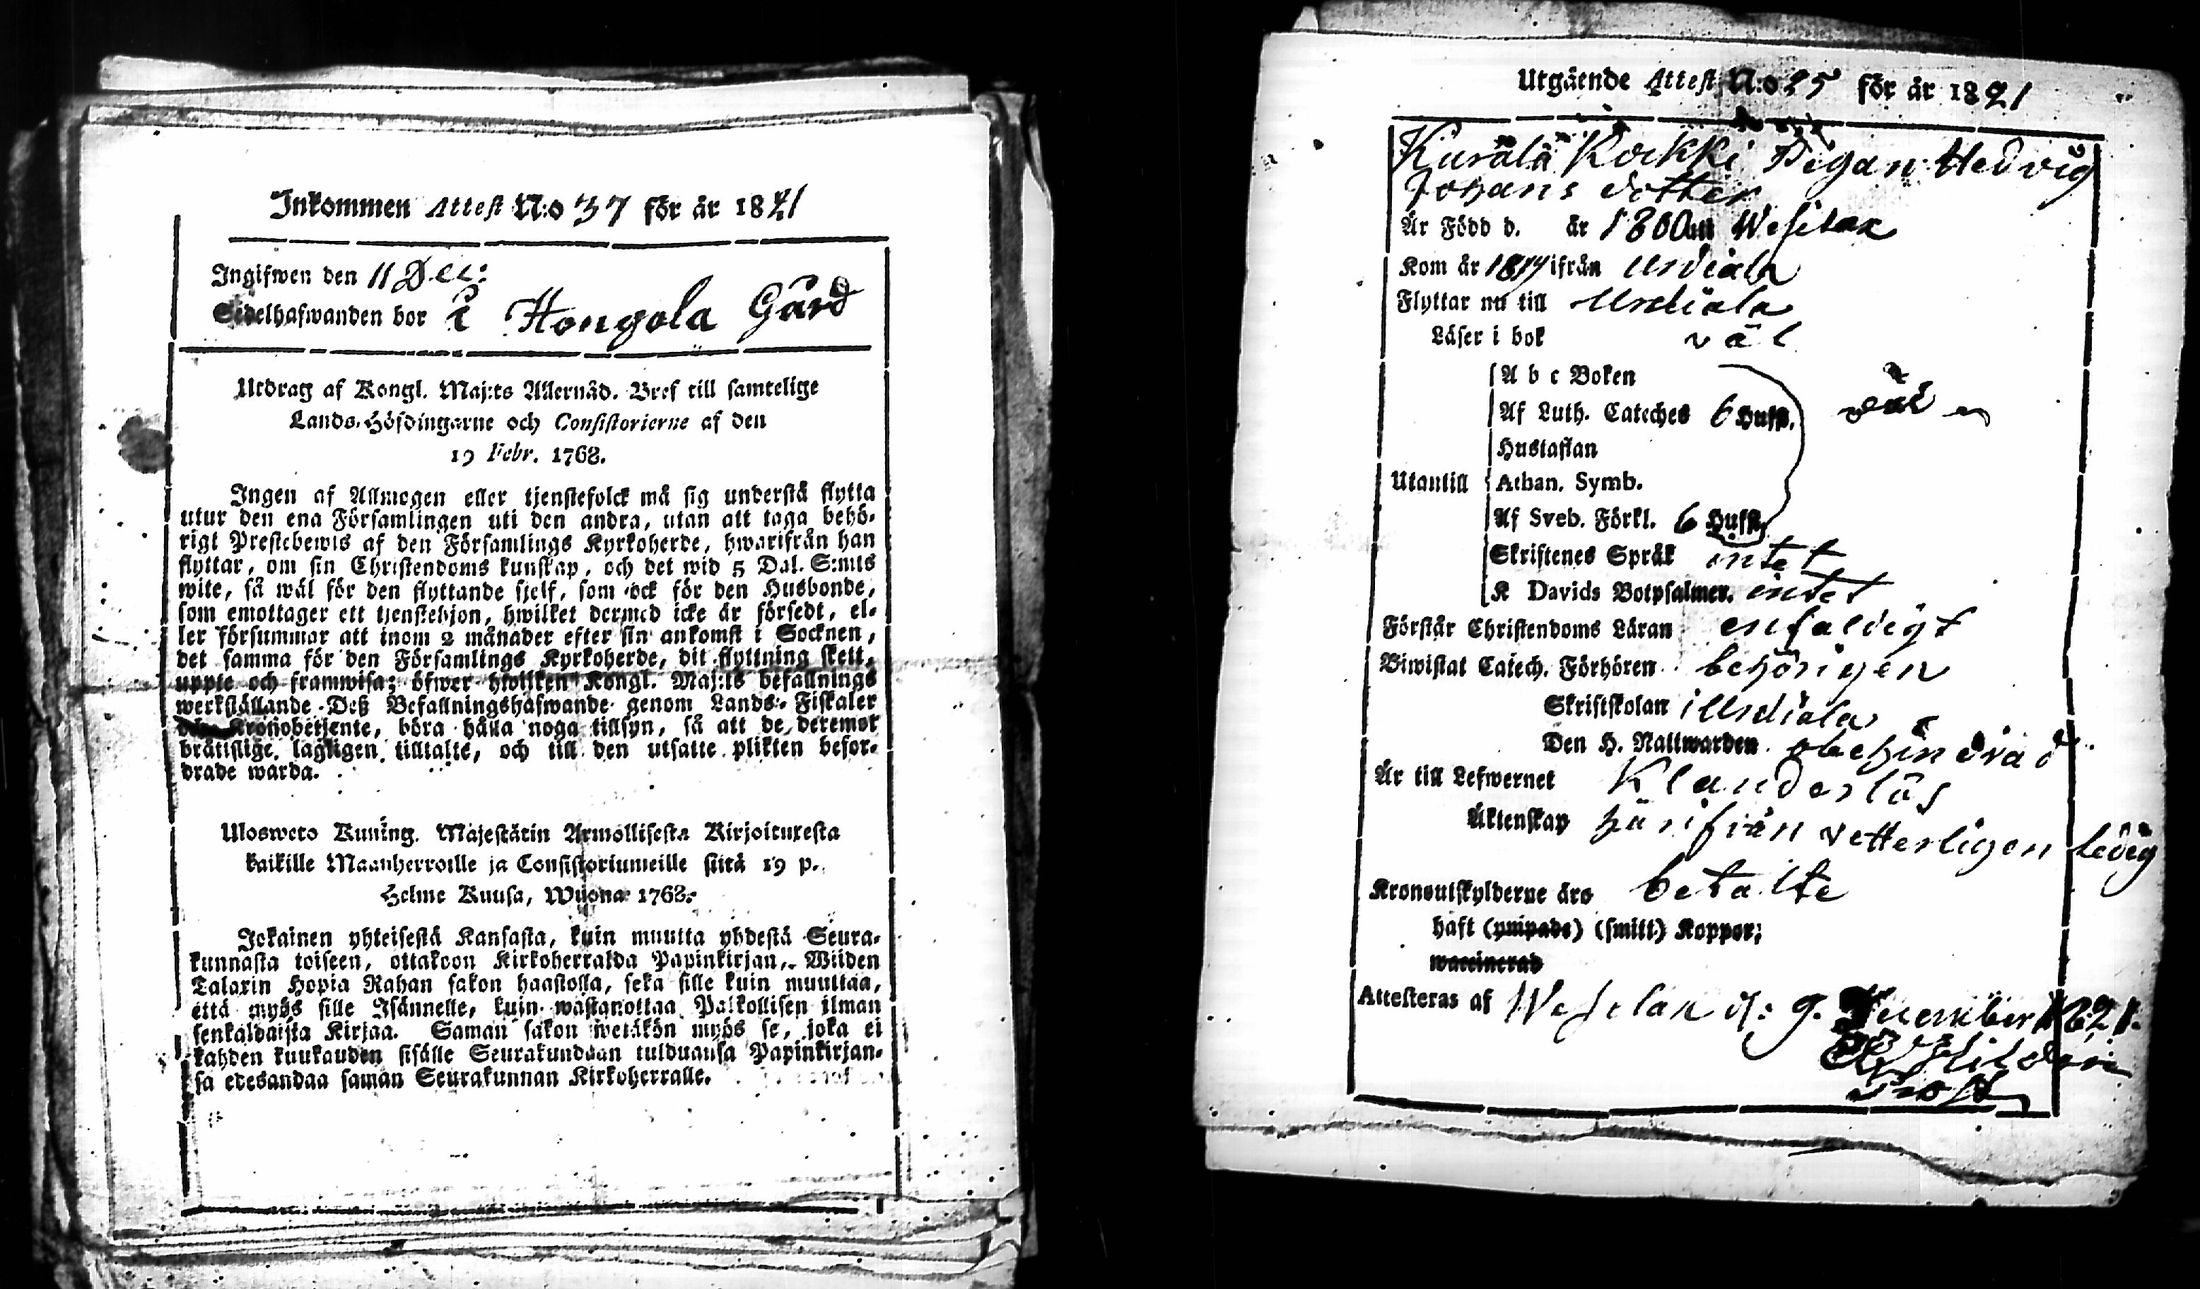 Inkommen Attest N:o 37 för år 1821
Ingifwen den 11 Dec:
Sedelhafwanden bor i Hongola Gård
Utdrag af Kongl. Maj:ts Allernåd. Bref till samtelige
Lands-Höfdingarne och Consistorierne af den
19 Febr. 1768.
Ingen af Allmogen eller tjenstefolck må sig understå flytta
utur den ena Församlingen uti den andra, utan att taga behö-
rigt Prestebewis af den Församlings Kyrkoherde, hwarifrån han
flyttar, om sin Christendoms kunskap, och det wid 5 Dal. S:mts
wite, så wäl för den flyttande sjelf, som ock för den Husbonde,
som emottager ett tjenstehjon, hwilket dermed icke är försedt, el-
ler försummar att inom 2 månader efter sin ankomst i Socknen,
det samma för den Församlings Kyrkoherde, dit flyttning skett,
uppte och framwisa; öfwer hwilken Kongl. Maj:ts befallnings
werkställande Deß Befallningshafwande genom Lands-Fiskaler
och Kronobetjente, böra hålla noga tillsyn, så att de deremot
brätislige lagligen tilltalte, och till den utsatte plikten befor-
drade warda.
Ulosweto Kuning. Majestätin Armollisesta Kirjoituxesta
kaikille Maanherroille ja Consistoriumeille siitä 19 p.
Helme Kuusa, Wuonna 1768.
Jokainen yhteisestä Kansasta, kuin muutta yhdestä Seura-
kunnasta toiseen, ottakoon Kirkoherralda Papinkirjan, Wiiden
Talarin Hopia Rahan sakon haastolla, sekä sille kuin muuttaa,
että myös sille Isännelle, kuin wastanottaa Palkollisen ilman
senkaldaista Kirjaa. Saman sakon wetäkön myös se, joka ei
kahden kuukauden sisälle Seurakundaan tulduansa Papinkirjan-
sa edesandaa saman Seurakunnan Kirkoherralle.
Utgående Attest N:o 25 för år 1821
Kurälä Kockki Pigan Hedvig
Johans dotter
Är Född d. år 1800 uti Wesilax
Kom år ifrån Urdiala
Flyttar nu till Urdiala
Läser i bok väl
A b c Boken
Af Luth. Cateches 6 Hufst. väl
Hustaflan
Utantill Athan. Symb.
Af Sveb. Förkl. 6 Hufst.
Skriftenes Språk intet
K Davids Botpsalmer. intet
Förstår Christendoms Läran enfaldigt
Biwistat Catech. Förhören behörigen
Skriftskolan i Urdiala
Den H. Nattwarden obehindrad
Är till Lefwernet Klanderlös
Äktenskap härifrån vetterligen ledig
Kronoutskylderne äro betalte
haft (ympade) (smitt) Koppor;
waccinerad
Attesteras af Wesilax d: 9. December 1821.
Prost